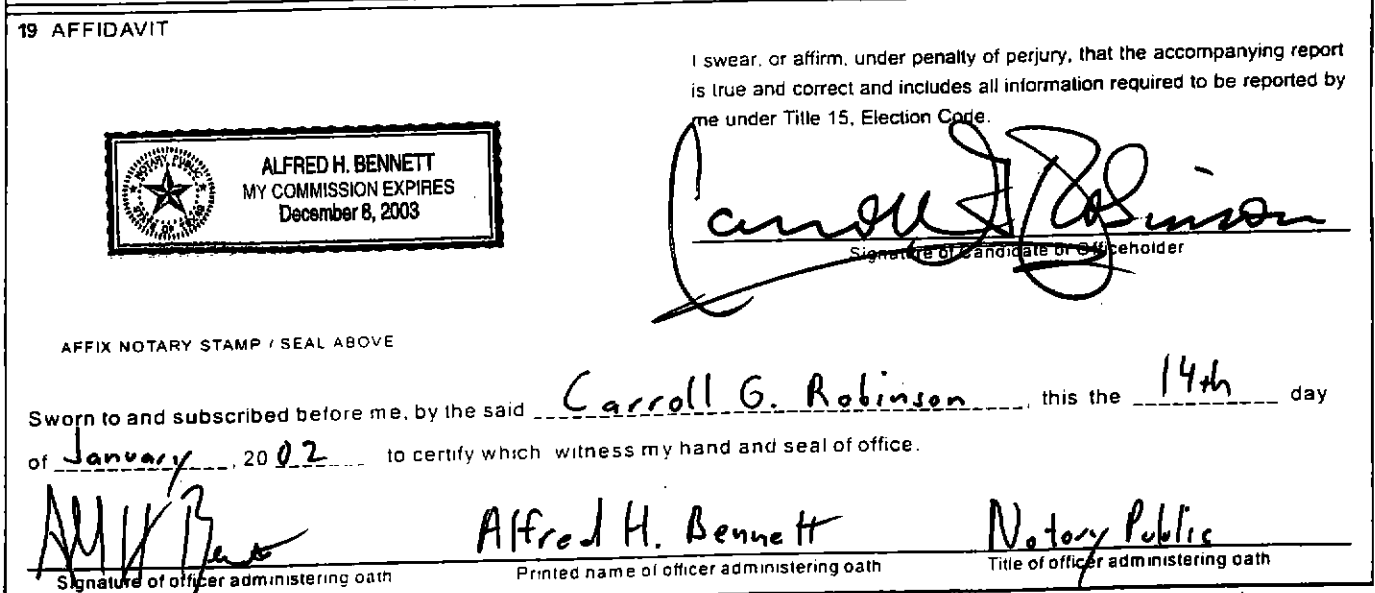 19 AFFIDAVIT
I swear, or affirm, under penalty of perjury, that the accompanying report
is true and correct and includes all information required to be reported by
me under Title 15, Election Code.
NOTARY PUBLIC
STATE OF TEXAS
ALFRED H. BENNETT
MY COMMISSION EXPIRES
December 8, 2003
Carroll G Robinson
Signature of Candidate or Officeholder
AFFIX NOTARY STAMP / SEAL ABOVE
Sworn to and subscribed before me, by the said Carroll G. Robinson, this the 14th day
of January, 20 02 to certify which witness my hand and seal of office.
Alfred H. Bennett Notary Public
Signature of officer administering oath Printed name of officer administering oath Title of officer administering oath